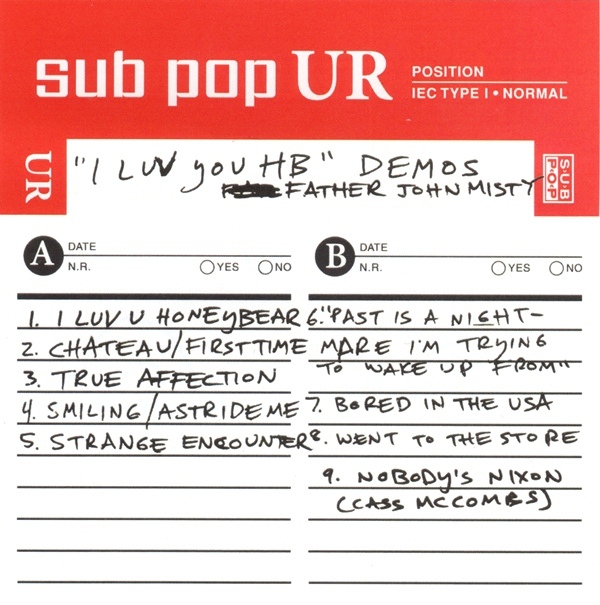 sub pop UR
POSITION
IEC TYPE I • NORMAL
UR
"I LUV YOU HB" DEMOS
FATHER JOHN MISTY
SUB
POP
A
DATE
N.R.
YES
NO
1. I LUV U HONEYBEAR
2. CHATEAU/FIRST TIME
3. TRUE AFFECTION
4. SMILING/ASTRIDE ME
5. STRANGE ENCOUNTER
B
DATE
N.R.
YES
NO
6. "PAST IS A NIGHT-
MARE I'M TRYING
TO WAKE UP FROM"
7. BORED IN THE USA
8. WENT TO THE STORE
9. NOBODY'S NIXON
(CASS MCCOMBS)